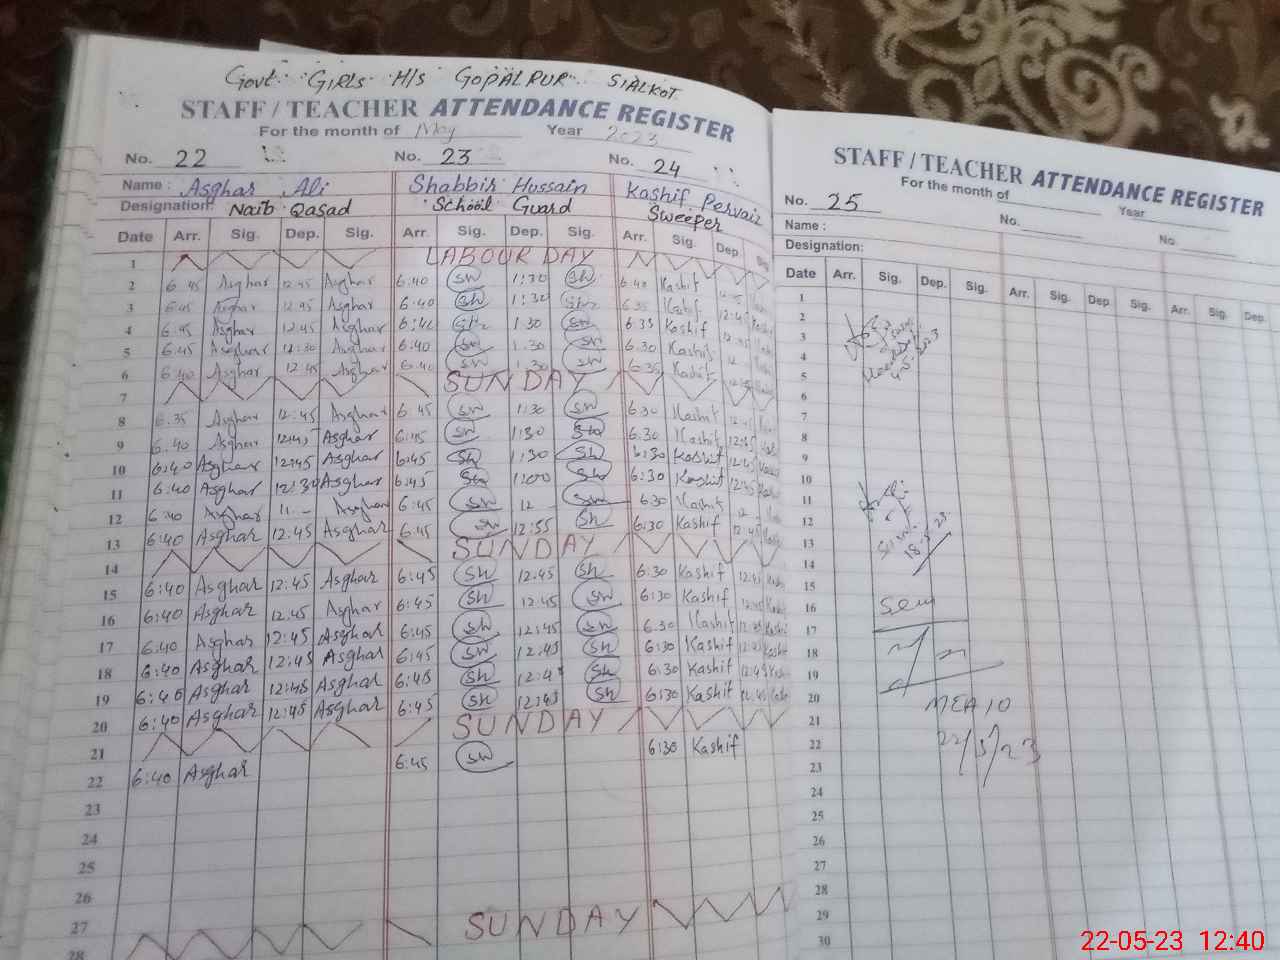 Govt. GIRLS H/S GOPALPUR SIALKOT
STAFF / TEACHER ATTENDANCE REGISTER
For the month of May Year 2023
No. 22 No. 23 No. 24
Name : Asghar Ali Shabbir Hussain Kashif Pervaiz
Designation: Naib Qasad School Guard Sweeper
Date Arr. Sig. Dep. Sig. Arr. Sig. Dep. Sig. Arr. Sig. Dep. Sig
1 LABOUR DAY
2 6:45 Asghar 12:45 Asghar 6:40 SH 1:30 SH 6:40 Kashif
3 6:45 Asghar 12:45 Asghar 6:40 SH 1:30 SH 6:35 Kashif 12:45
4 6:45 Asghar 12:45 Asghar 6:40 SH 1:30 SH 6:35 Kashif
5 6:45 Asghar 12:30 Asghar 6:40 SH 1:30 SH 6:30 Kashif 12
6 6:40 Asghar 12:45 Asghar 6:40 SH 1:30 SH 6:35 Kashif
7 SUNDAY
8 6:35 Asghar 12:45 Asghar 6:45 SH 1:30 SH 6:30 Kashif 12:45
9 6:40 Asghar 12:45 Asghar 6:45 SH 1:30 SH 6:30 Kashif 12:45
10 6:40 Asghar 12:45 Asghar 6:45 SH 1:30 SH 6:30 Kashif 12:45
11 6:40 Asghar 12:30 Asghar 6:45 SH 1:00 SH 6:30 Kashif
12 6:40 Asghar 11 - Asghar 6:45 SH 12 SH 6:30 Kashif 12
13 6:40 Asghar 12:45 Asghar 6:45 SH 12:55 SH 6:30 Kashif 12:45
14 SUNDAY
15 6:40 Asghar 12:45 Asghar 6:45 SH 12:45 SH 6:30 Kashif 12:45
16 6:40 Asghar 12:45 Asghar 6:45 SH 12:45 SH 6:30 Kashif 12:45
17 6:40 Asghar 12:45 Asghar 6:45 SH 12:45 SH 6:30 Kashif 12:45
18 6:40 Asghar 12:45 Asghar 6:45 SH 12:45 SH 6:30 Kashif 12:45
19 6:40 Asghar 12:45 Asghar 6:45 SH 12:45 SH 6:30 Kashif 12:45
20 6:40 Asghar 12:45 Asghar 6:45 SH 12:45 SH 6:30 Kashif 12:45
21 SUNDAY
22 6:40 Asghar 6:45 SH 6:30 Kashif
23
24
25
26
27 SUNDAY
28
STAFF / TEACHER ATTENDANCE REGISTER
For the month of Year
No. 25 No. No.
Name :
Designation:
Date Arr. Sig. Dep. Sig. Arr. Sig. Dep Sig. Arr. Sig. Dep.
1
2
3
4
5
6
7
8
9
10
11
12
13
14
15
16
17
18
19
20
21
22
23
24
25
26
27
28
29
30
MEA 10
22/5/23
22-05-23 12:40